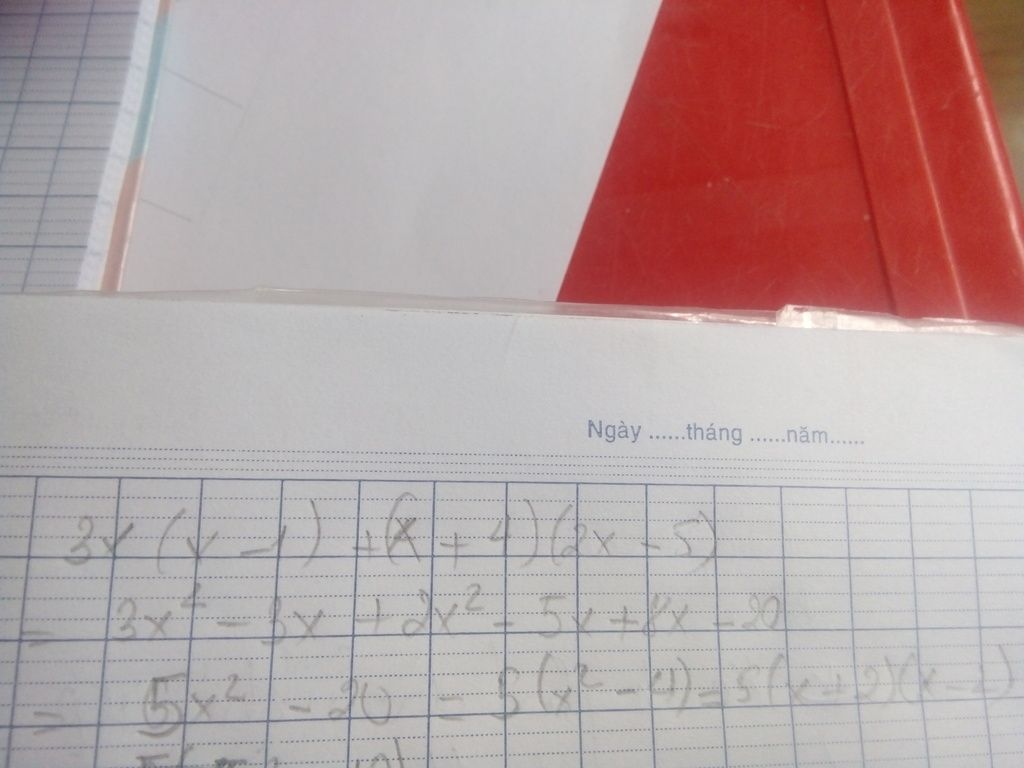 Ngày ......tháng ......năm......
3x (x - 1) + (x + 4) (2x - 5)
= 3x² - 3x + 2x² - 5x + 8x - 20
= 5x² - 20 = 5(x² - 4) = 5(x + 2)(x - 2)